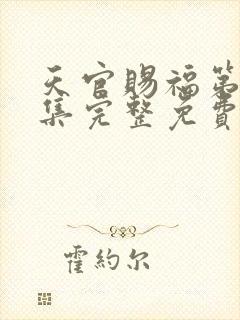 天官賜福第
集完整免費
霍約尔